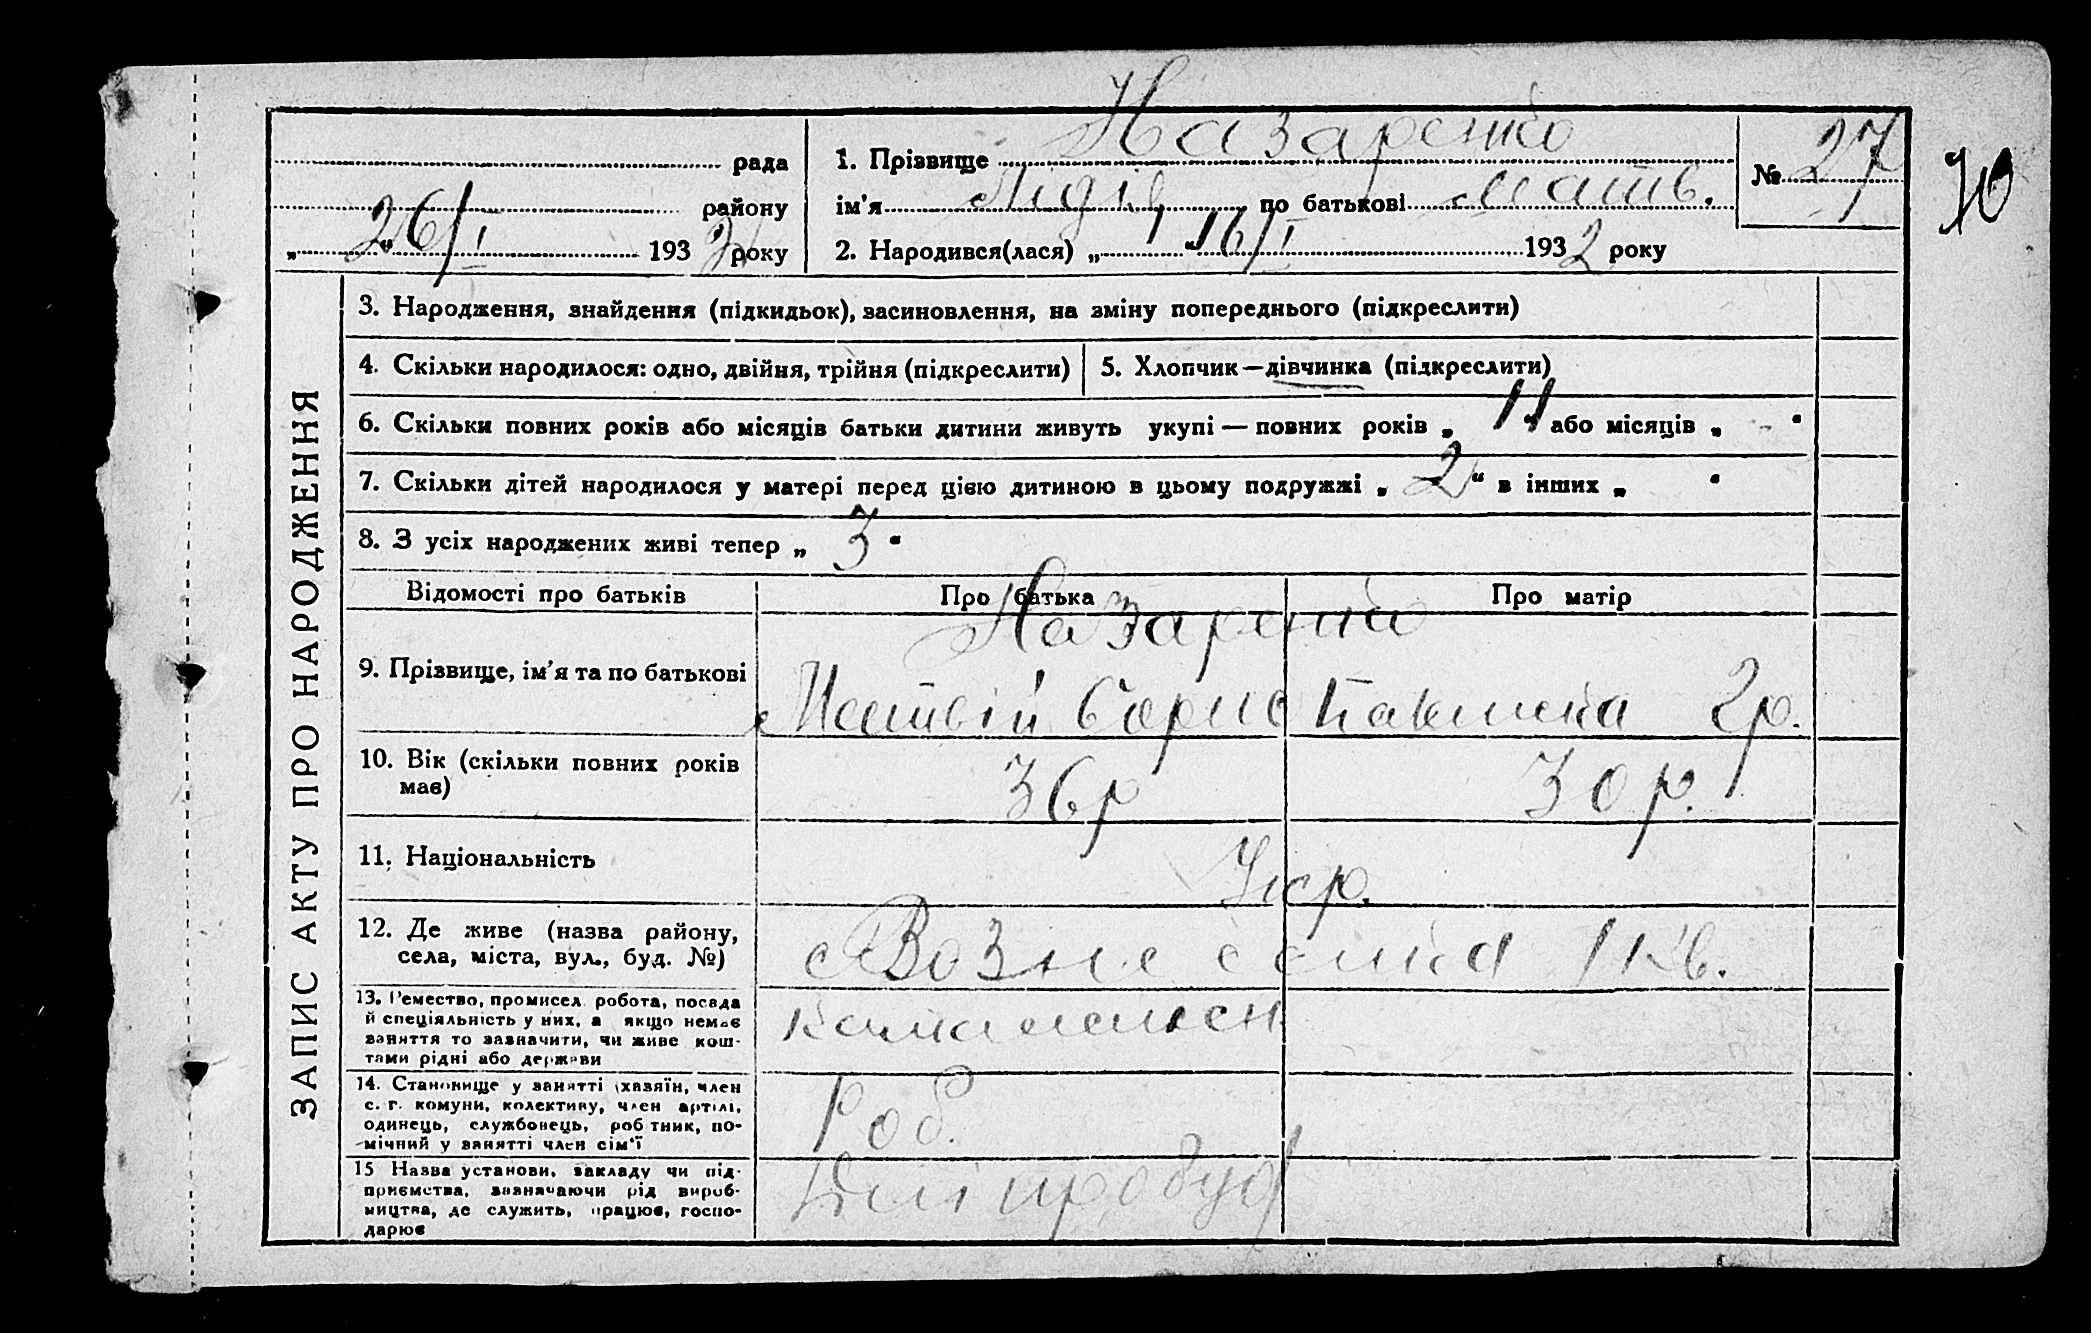 Назаренко
рада
1. Прізвище
№ 27
Ю
району
ім'я Лідія по батькові Матв.
1
„26/I 1932 року
2. Народився(лася) „16/I 1932 року
ЗАПИС АКТУ ПРО НАРОДЖЕННЯ
3. Народження, знайдення (підкидьок), засиновлення, на зміну попереднього (підкреслити)
4. Скільки народилося: одно, двійня, трійня (підкреслити)
5. Хлопчик — дівчинка (підкреслити)
6. Скільки повних років або місяців батьки дитини живуть укупі — повних років „ 11 або місяців „ - "
7. Скільки дітей народилося у матері перед цією дитиною в цьому подружжі „ 2 “ в інших „ "
8. З усіх народжених живі тепер „ 3 "
Відомості про батьків
Про батька
Про матір
Назаренко
9. Прізвище, ім'я та по батькові
Матвій Борис
Гр.
10. Вік (скільки повних років
має)
36 р
30 р.
11. Національність
Укр.
12. Де живе (назва району,
села, міста, вул., буд. №)
с Вознесенка 1 кв.
13. Ремество, промисел робота, посада
й спеціяльність у них, а якщо немає
заняття то зазначити, чи живе кош-
тами рідні або держави
14. Становище у занятті (хазяїн, член
с.-г. комуни, колективу, член артілі,
одинець, службовець, робітник, по-
мічний у занятті член сім'ї
Роб.
15 Назва установи, закладу чи під-
приємства, зазначаючи рід вироб-
ництва, де служить, працює, госпо-
дарює
Дніпробуд